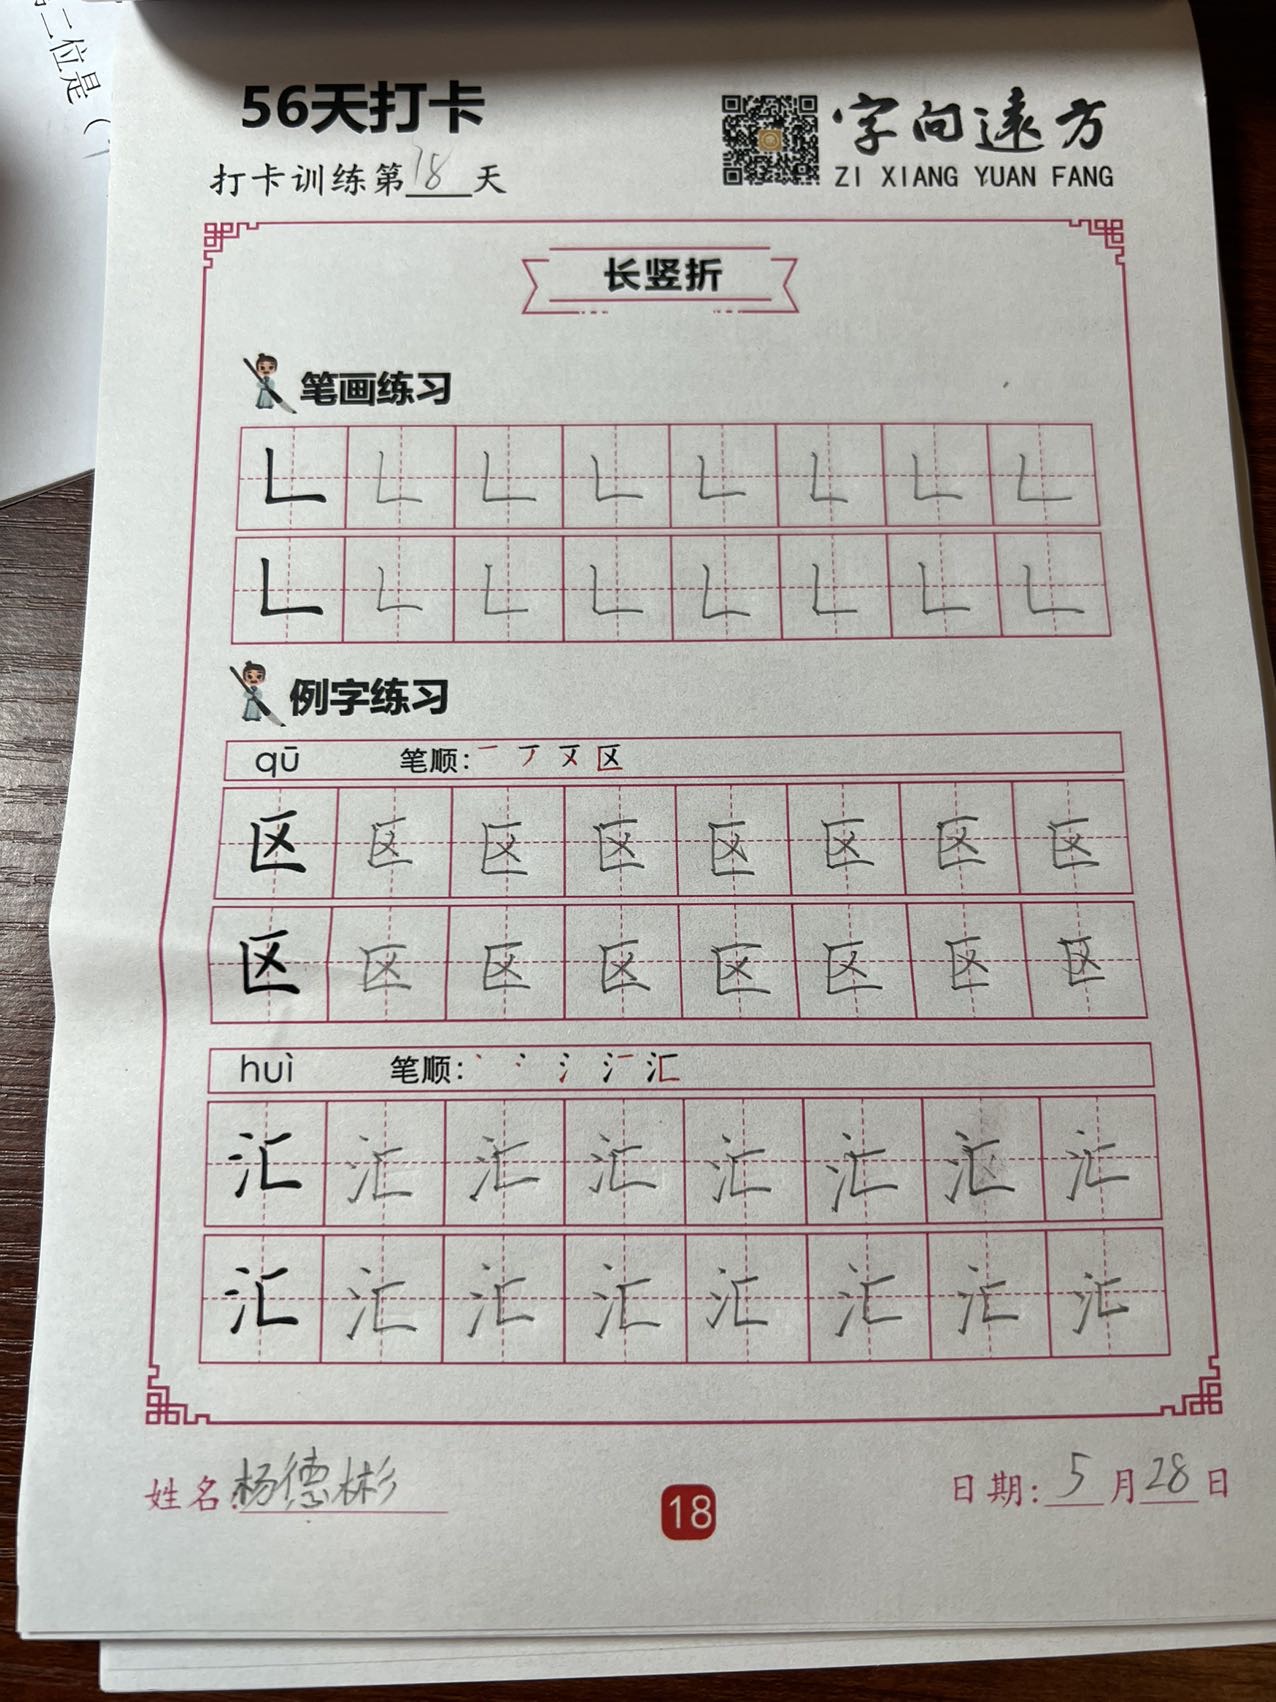 二位是（
56天打卡
字向远方
打卡训练第18天
ZI XIANG YUAN FANG
长竖折
笔画练习
𠃊 𠃊 𠃊 𠃊 𠃊 𠃊 𠃊 𠃊
𠃊 𠃊 𠃊 𠃊 𠃊 𠃊 𠃊 𠃊
例字练习
qū 笔顺：
区 区 区 区 区 区 区 区
区 区 区 区 区 区 区 区
huì 笔顺：
汇 汇 汇 汇 汇 汇 汇 汇
汇 汇 汇 汇 汇 汇 汇 汇
姓名:杨德彬
18
日期:5月28日